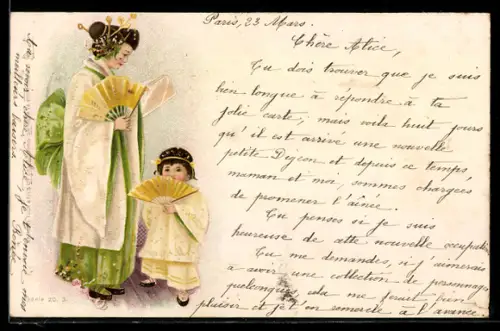 Paris, 23 Mars.
Chère Alice,
Tu dois trouver que je suis
bien longue à répondre à ta
jolie carte; mais voila huit jours
qu'il est arrivé une nouvelle
petite Dijon et depuis ce temps,
maman et moi, sommes chargées
de promener l'aînée.
Tu penses si je suis
heureuse de cette nouvelle occupation
Tu me demandes, si j'aimerais
à avoir une collection de personnages
quelconques, cela me ferait bien
plaisir et je t'en remercie à l'avance
meilleurs baisers
Série 22. 7.